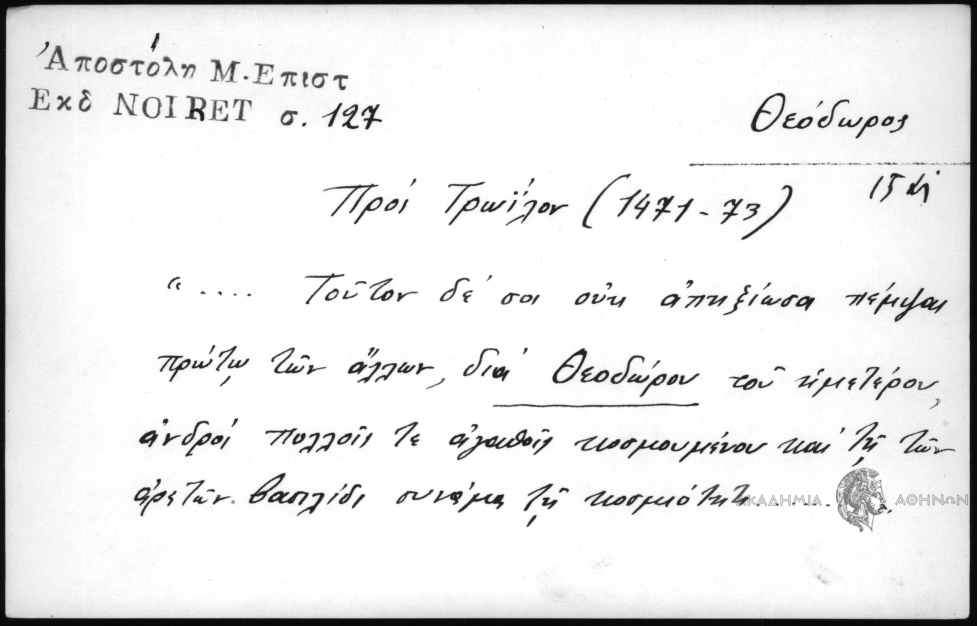 Ἀποστόλη Μ. Επιστ
Εκδ NOIRET σ. 127
Θεόδωρος
15
Πρός Τρωΐλον (1471-73)
".... Τοῦτον δέ σοι οὐκ ἀπηξίωσα πέμψαι
πρώτῳ τῶν ἄλλων, διά Θεοδώρου τοῦ ἡμετέρου,
ἀνδρός πολλοῖς τε ἀγαθοῖς κοσμουμένου καί τῇ τῶν
ἀρετῶν βασιλίδι συνάμα τῇ κοσμιότητι .....
ΑΚΑΔΗΜΙΑ ΑΘΗΝΩΝ